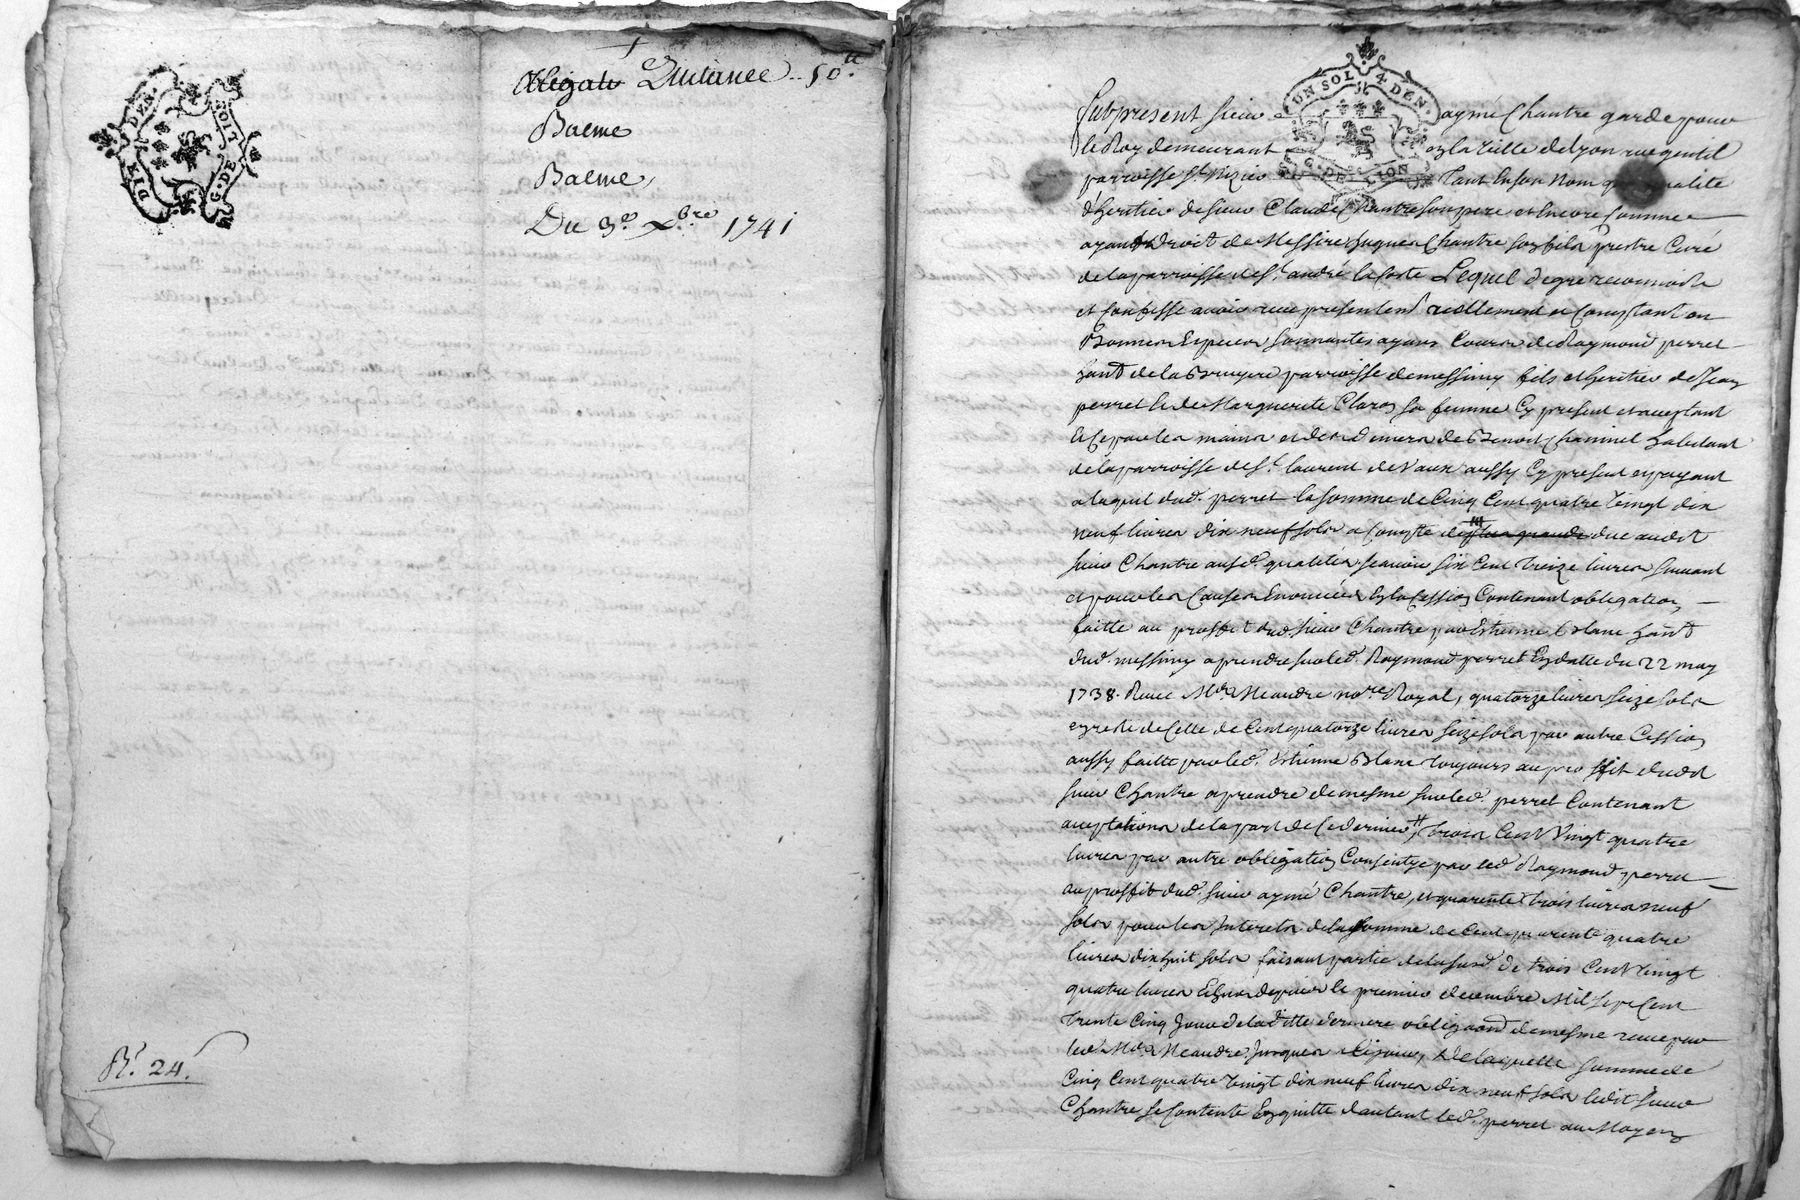 DIX DEN.
HUIT
G. DE LION
Quitance .. 50.tt
Balme
Balme,
Du 3.e Xbre 1741
R.t 24.s
UN SOL 4 DEN.
G. DE LION
fut present sieur aymé Chantre garde pour
le Roy demeurant en la ville de Lyon rue gentil
parroisse st. Nizier tant en son nom que qualité
d'heritier de sieur Claude Chantre son pere et encore comme
ayant droit de Messire hugues Chantre son fils prestre Curé
de la parroisse de st. andré la Coste Lequel de gré reconnoist
et Confesse avoir receu presentem.t reellement et Comptant en
Bonnes Especes sonnantes ayans Cours de Raymond perret
hant de la Bruyere parroisse de messimy fils et heritier de Jean
perret et de Marguerite Claron sa femme Cy present et acceptant
Et Ce par les mains et des deniers de Benoit Chaminel habitant
de la parroisse de st. laurent de Vaux aussy Cy present en payant
a l'aquit dud. perret la somme de Cinq Cent quatre vingt dix
neuf livres dix neuf sols a Compte de plus grande due audit
sieur Chantre ausd. qualités scavoir six Cent treize livres suivant
et pour les Causes Enoncées En la Cession Contenant obligation
faitte au proffit dud. sieur Chantre par Estienne Blanc hant
dud. messimy a prendre sur led. Raymond perret En datte du 22 may
1738. Receu Me Meaudre nore Royal, quatorze livres seize sols
en reste de Celle de Cent quatorze livres seize sols par autre Cession
aussy faitte par led. Estienne Blanc toujours au proffit dudit
sieur Chantre a prendre de mesme sur led. perret Contenant
acceptation de la part de Ce dernier, # trois Cent Vingt quatre
livres par autre obligation Consentye par led. Raymond perret
au proffit dud. sieur aymé Chantre, et quarente trois livres neuf
sols pour les Interets de la somme de Cent quarente quatre
livres dix huit sols faisant partie de la susd. de trois Cent Vingt
quatre livres Echus depuis le premier decembre Mil sept Cent
trente Cinq Jour de la ditte derniere obligaon de mesme receue par
led. Me Meaudre Jusques a Ce jour, de laquelle somme de
Cinq Cent quatre Vingt dix neuf livres dix neuf sols ledit sieur
Chantre se Contente En quitte d'autant led. perret au Moyen